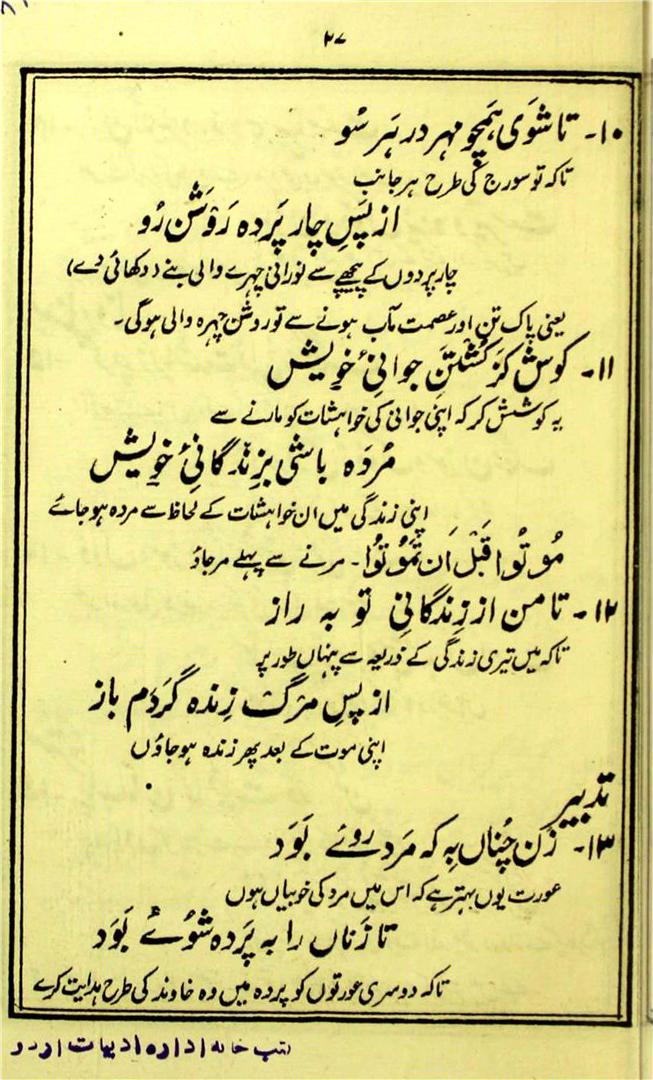 ۲۷
۱۰۔ تا شوَی ہَمچو مہر در ہَر سُو
تاکہ تو سورج کی طرح ہر جانب
از پَسِ چار پَردہ رَوَشن رُو
چار پردوں کے پیچھے سے نورانی چہرے والی بنے (دکھائی دے)
یعنی پاک تن اور عصمت مآب ہونے سے تو روشن چہرہ والی ہوگی۔
۱۱۔ کوش کز کُشتنِ جوانیٔ خویش
یہ کوشش کر کہ اپنی جوانی کی خواہشات کو مارنے سے
مُردَہ باشی بزِندگانیٔ خویش
اپنی زندگی میں ان خواہشات کے لحاظ سے مردہ ہو جائے
مُوتُوا قَبْلَ اَن تَمُوتُوا۔ مرنے سے پہلے مرجاؤ
۱۲۔ تا من از زِندگانیِ تو بہ راز
تاکہ میں تیری زندگی کے ذریعہ سے پنہاں طور پر
از پسِ مرگ زِندہ گَردَم باز
اپنی موت کے بعد پھر زندہ ہو جاؤں
تدبیر
۱۳۔ زَن چُناں بِہ کہ مَرد روئے بَوَد
عورت یوں بہتر ہے کہ اس میں مرد کی خوبیاں ہوں
تا زَناں را بہ پَردہ شوُئے بَوَد
تاکہ دوسری عورتوں کو پردہ میں وہ خاوند کی طرح ہدایت کرے
کتب خانہ ادارہ ادبیات اردو